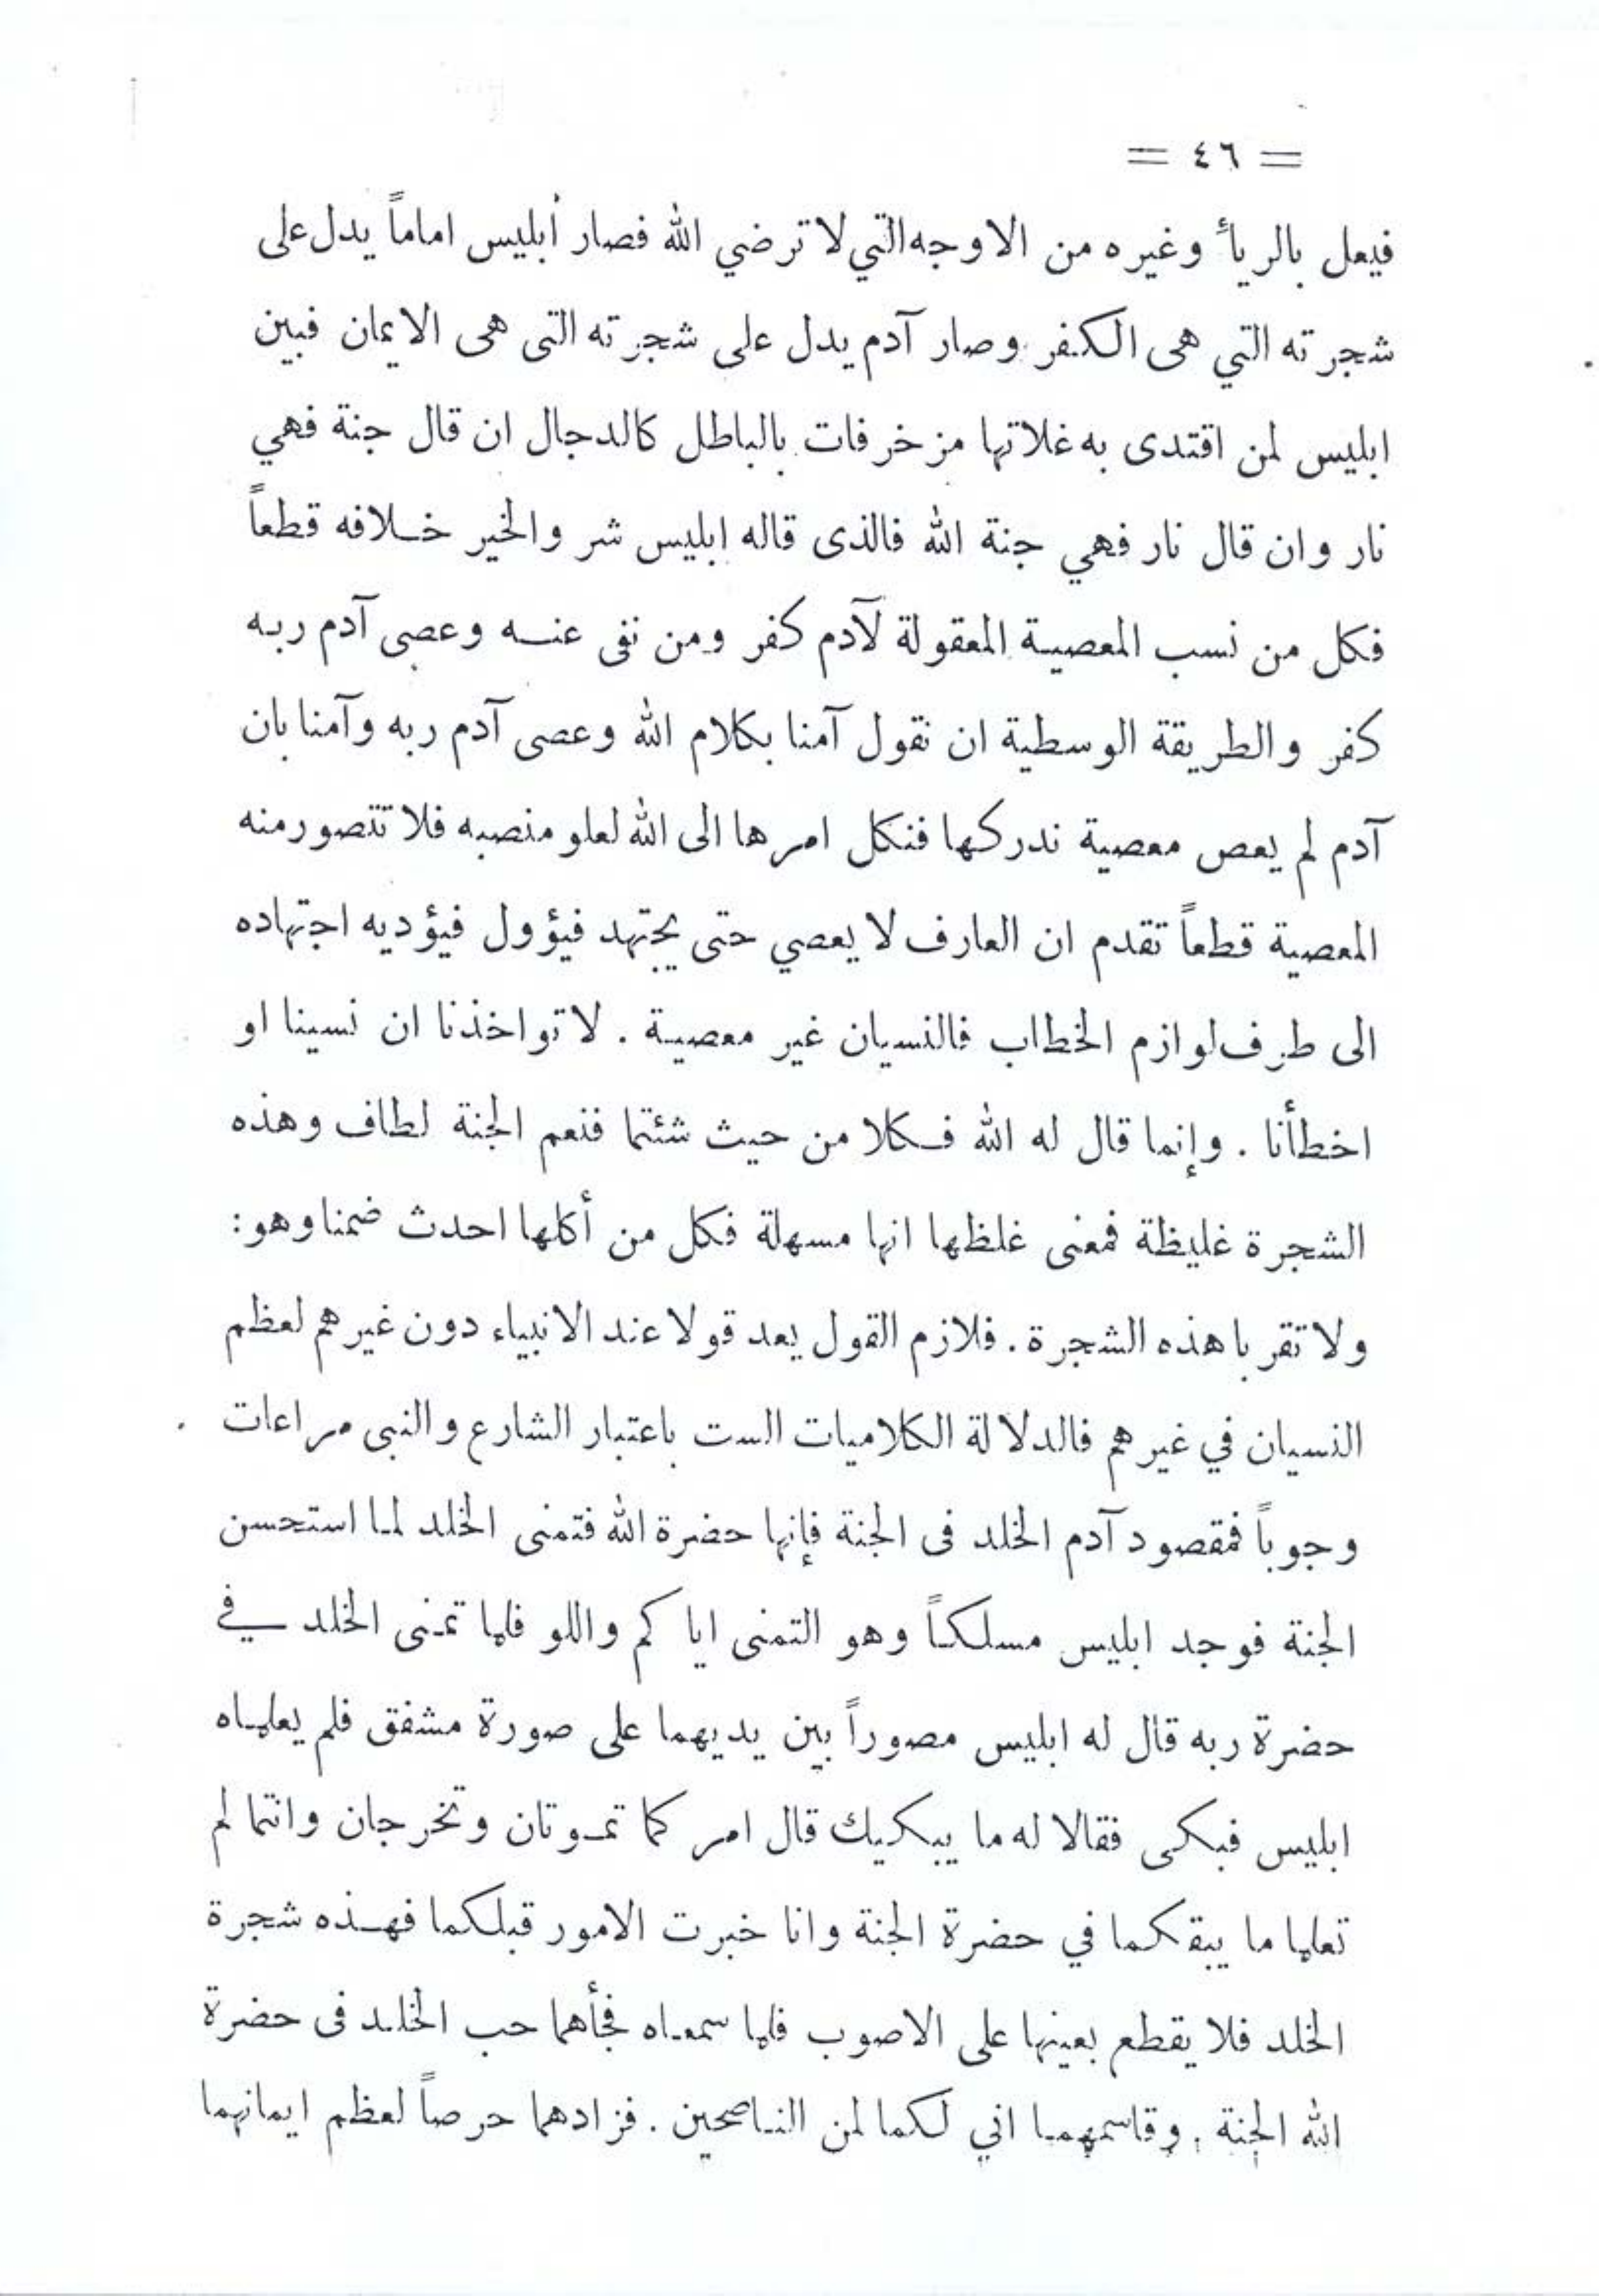 = ٤٦ =
فيعل بالريأ وغيره من الاوجه التي لا ترضي الله فصار أبليس اماماً يدل على
شجرته التي هى الكفر وصار آدم يدل على شجرته التى هى الايمان فبين
ابليس لمن اقتدى به غلاتها مزخرفات بالباطل كالدجال ان قال جنة فهي
نار وان قال نار فهي جنة الله فالذى قاله ابليس شر والخير خلافه قطعاً
فكل من نسب المعصية المعقولة لآدم كفر ومن نفى عنه وعصى آدم ربه
كفر والطريقة الوسطية ان نقول آمنا بكلام الله وعصى آدم ربه وآمنا بان
آدم لم يعص معصية ندركها فنكل امرها الى الله لعلو منصبه فلا تتصور منه
المعصية قطعاً تقدم ان العارف لا يعصي حتى يجتهد فيؤول فيؤديه اجتهاده
الى طرف لوازم الخطاب فالنسيان غير معصية . لا تواخذنا ان نسينا او
اخطأنا . وإنما قال له الله فكلا من حيث شئتما فنعم الجنة لطاف وهذه
الشجرة غليظة فمعنى غلظها انها مسهلة فكل من أكلها احدث ضمنا وهو:
ولا تقربا هذه الشجرة . فلازم القول يعد قولا عند الانبياء دون غيرهم لعظم
النسيان في غيرهم فالدلالة الكلاميات الست باعتبار الشارع والنبى مراعات
وجوباً فمقصود آدم الخلد فى الجنة فإنها حضرة الله فتمنى الخلد لما استحسن
الجنة فوجد ابليس مسلكاً وهو التمنى اياكم واللو فلما تمنى الخلد في
حضرة ربه قال له ابليس مصوراً بين يديهما على صورة مشفق فلم يعلماه
ابليس فبكى فقالا له ما يبكيك قال امركما تموتان وتخرجان وانتما لم
تعلما ما يبقكما في حضرة الجنة وانا خبرت الامور قبلكما فهذه شجرة
الخلد فلا يقطع بعينها على الاصوب فلما سمعاه فجأهما حب الخلد فى حضرة
الله الجنة . وقاسمهما اني لكما لمن الناصحين . فزادهما حرصاً لعظم ايمانهما